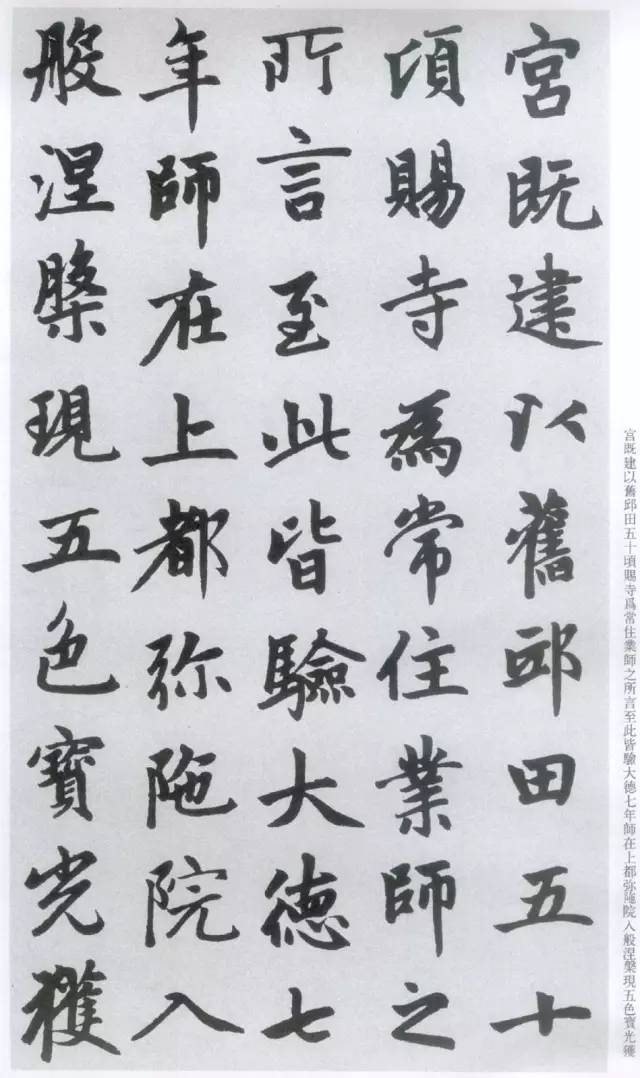 宮既建以舊邱田五十
頃賜寺爲常住業師之
所言至此皆驗大德七
年師在上都弥陁院入
般涅槃現五色寶光獲
宮既建以舊邱田五十頃賜寺爲常住業師之所言至此皆驗大德七年師在上都弥陁院入般涅槃現五色寶光獲